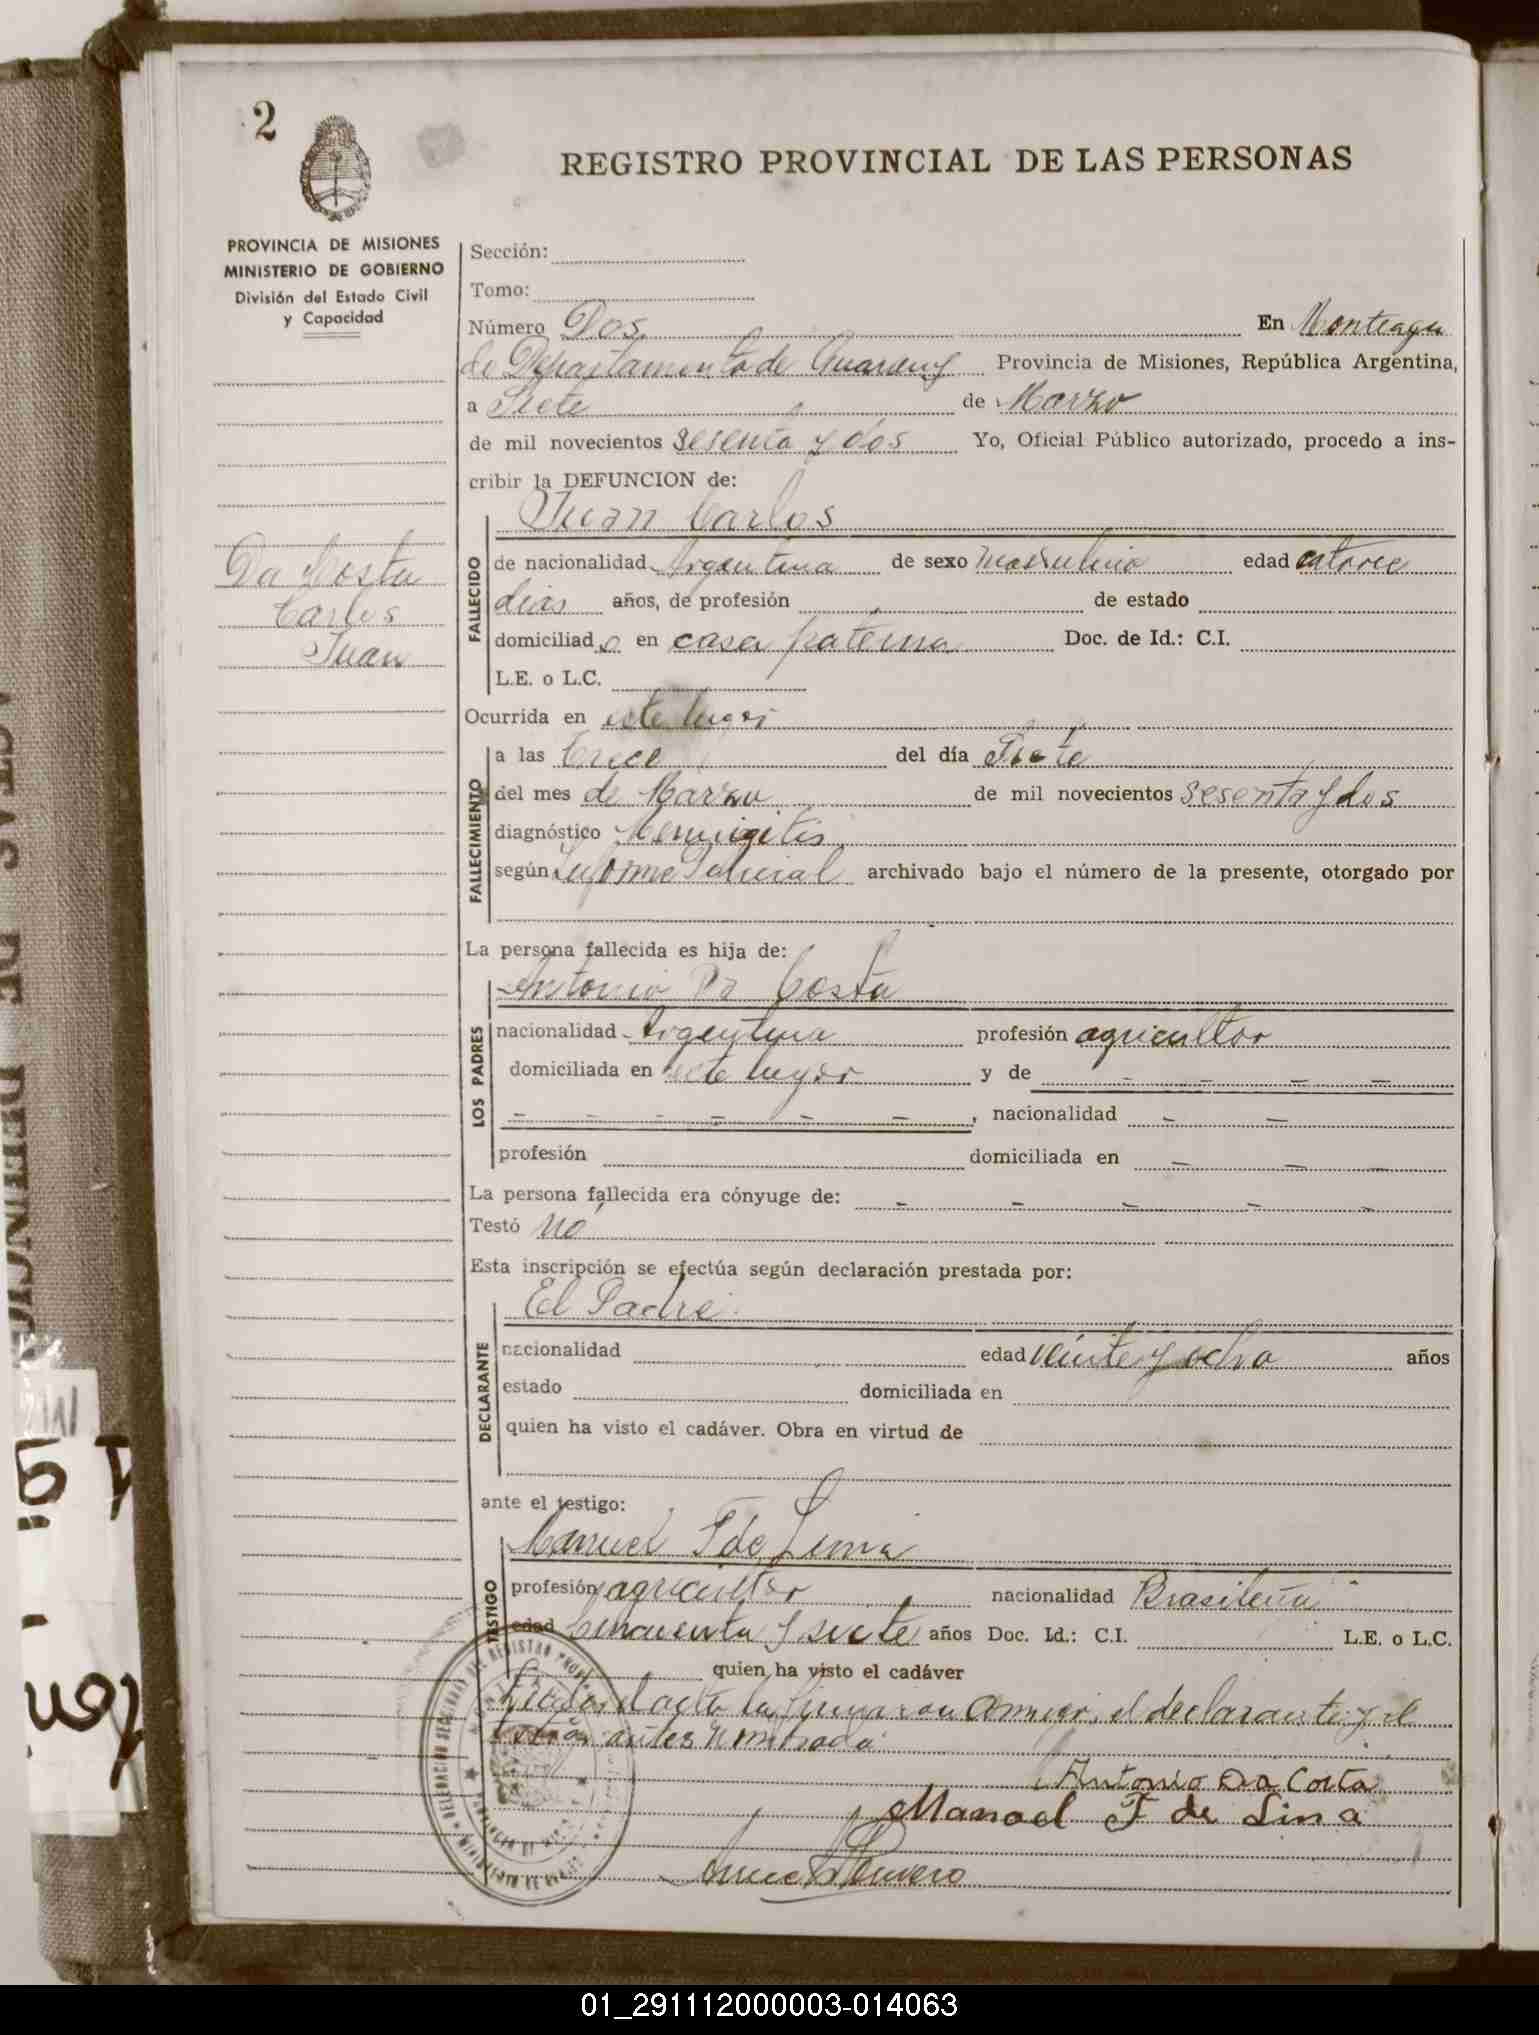 2
REGISTRO PROVINCIAL DE LAS PERSONAS
PROVINCIA DE MISIONES
MINISTERIO DE GOBIERNO
División del Estado Civil
y Capacidad
Da Costa
Carlos
Juan
Sección:
Tomo:
Número Dos En Monteagu
do Departamento de Guarany Provincia de Misiones, República Argentina,
a Siete de Marzo
de mil novecientos sesenta y dos Yo, Oficial Público autorizado, procedo a ins-
cribir la DEFUNCION de:
Juan Carlos
FALLECIDO
de nacionalidad Argentina de sexo masculino edad catorce
dias años, de profesión de estado
domiciliad o en casa paterna Doc. de Id.: C.I.
L.E. o L.C.
Ocurrida en este lugar
FALLECIMIENTO
a las trece del día Siete
del mes de Marzo de mil novecientos sesenta y dos
diagnóstico Meningitis
según Informe Policial archivado bajo el número de la presente, otorgado por
La persona fallecida es hija de:
LOS PADRES
Antonio Da Costa
nacionalidad Argentina profesión agricultor
domiciliada en este lugar y de - - - -
- - - - - - , nacionalidad - -
profesión domiciliada en - - -
La persona fallecida era cónyuge de: - - - - -
Testó no
Esta inscripción se efectúa según declaración prestada por:
DECLARANTE
El Padre
nacionalidad edad veinte y ocho años
estado domiciliada en
quien ha visto el cadáver. Obra en virtud de
ante el testigo:
TESTIGO
Manuel F de Lima
profesión agricultor nacionalidad Brasileña
edad Cincuenta y siete años Doc. Id.: C.I. L.E. o L.C.
quien ha visto el cadáver
Leida el acta la firmaron conmigo, el declarante y el
testigo antes nombrado
Antonio Da Costa
Manoel F de Lima
01_291112000003-014063